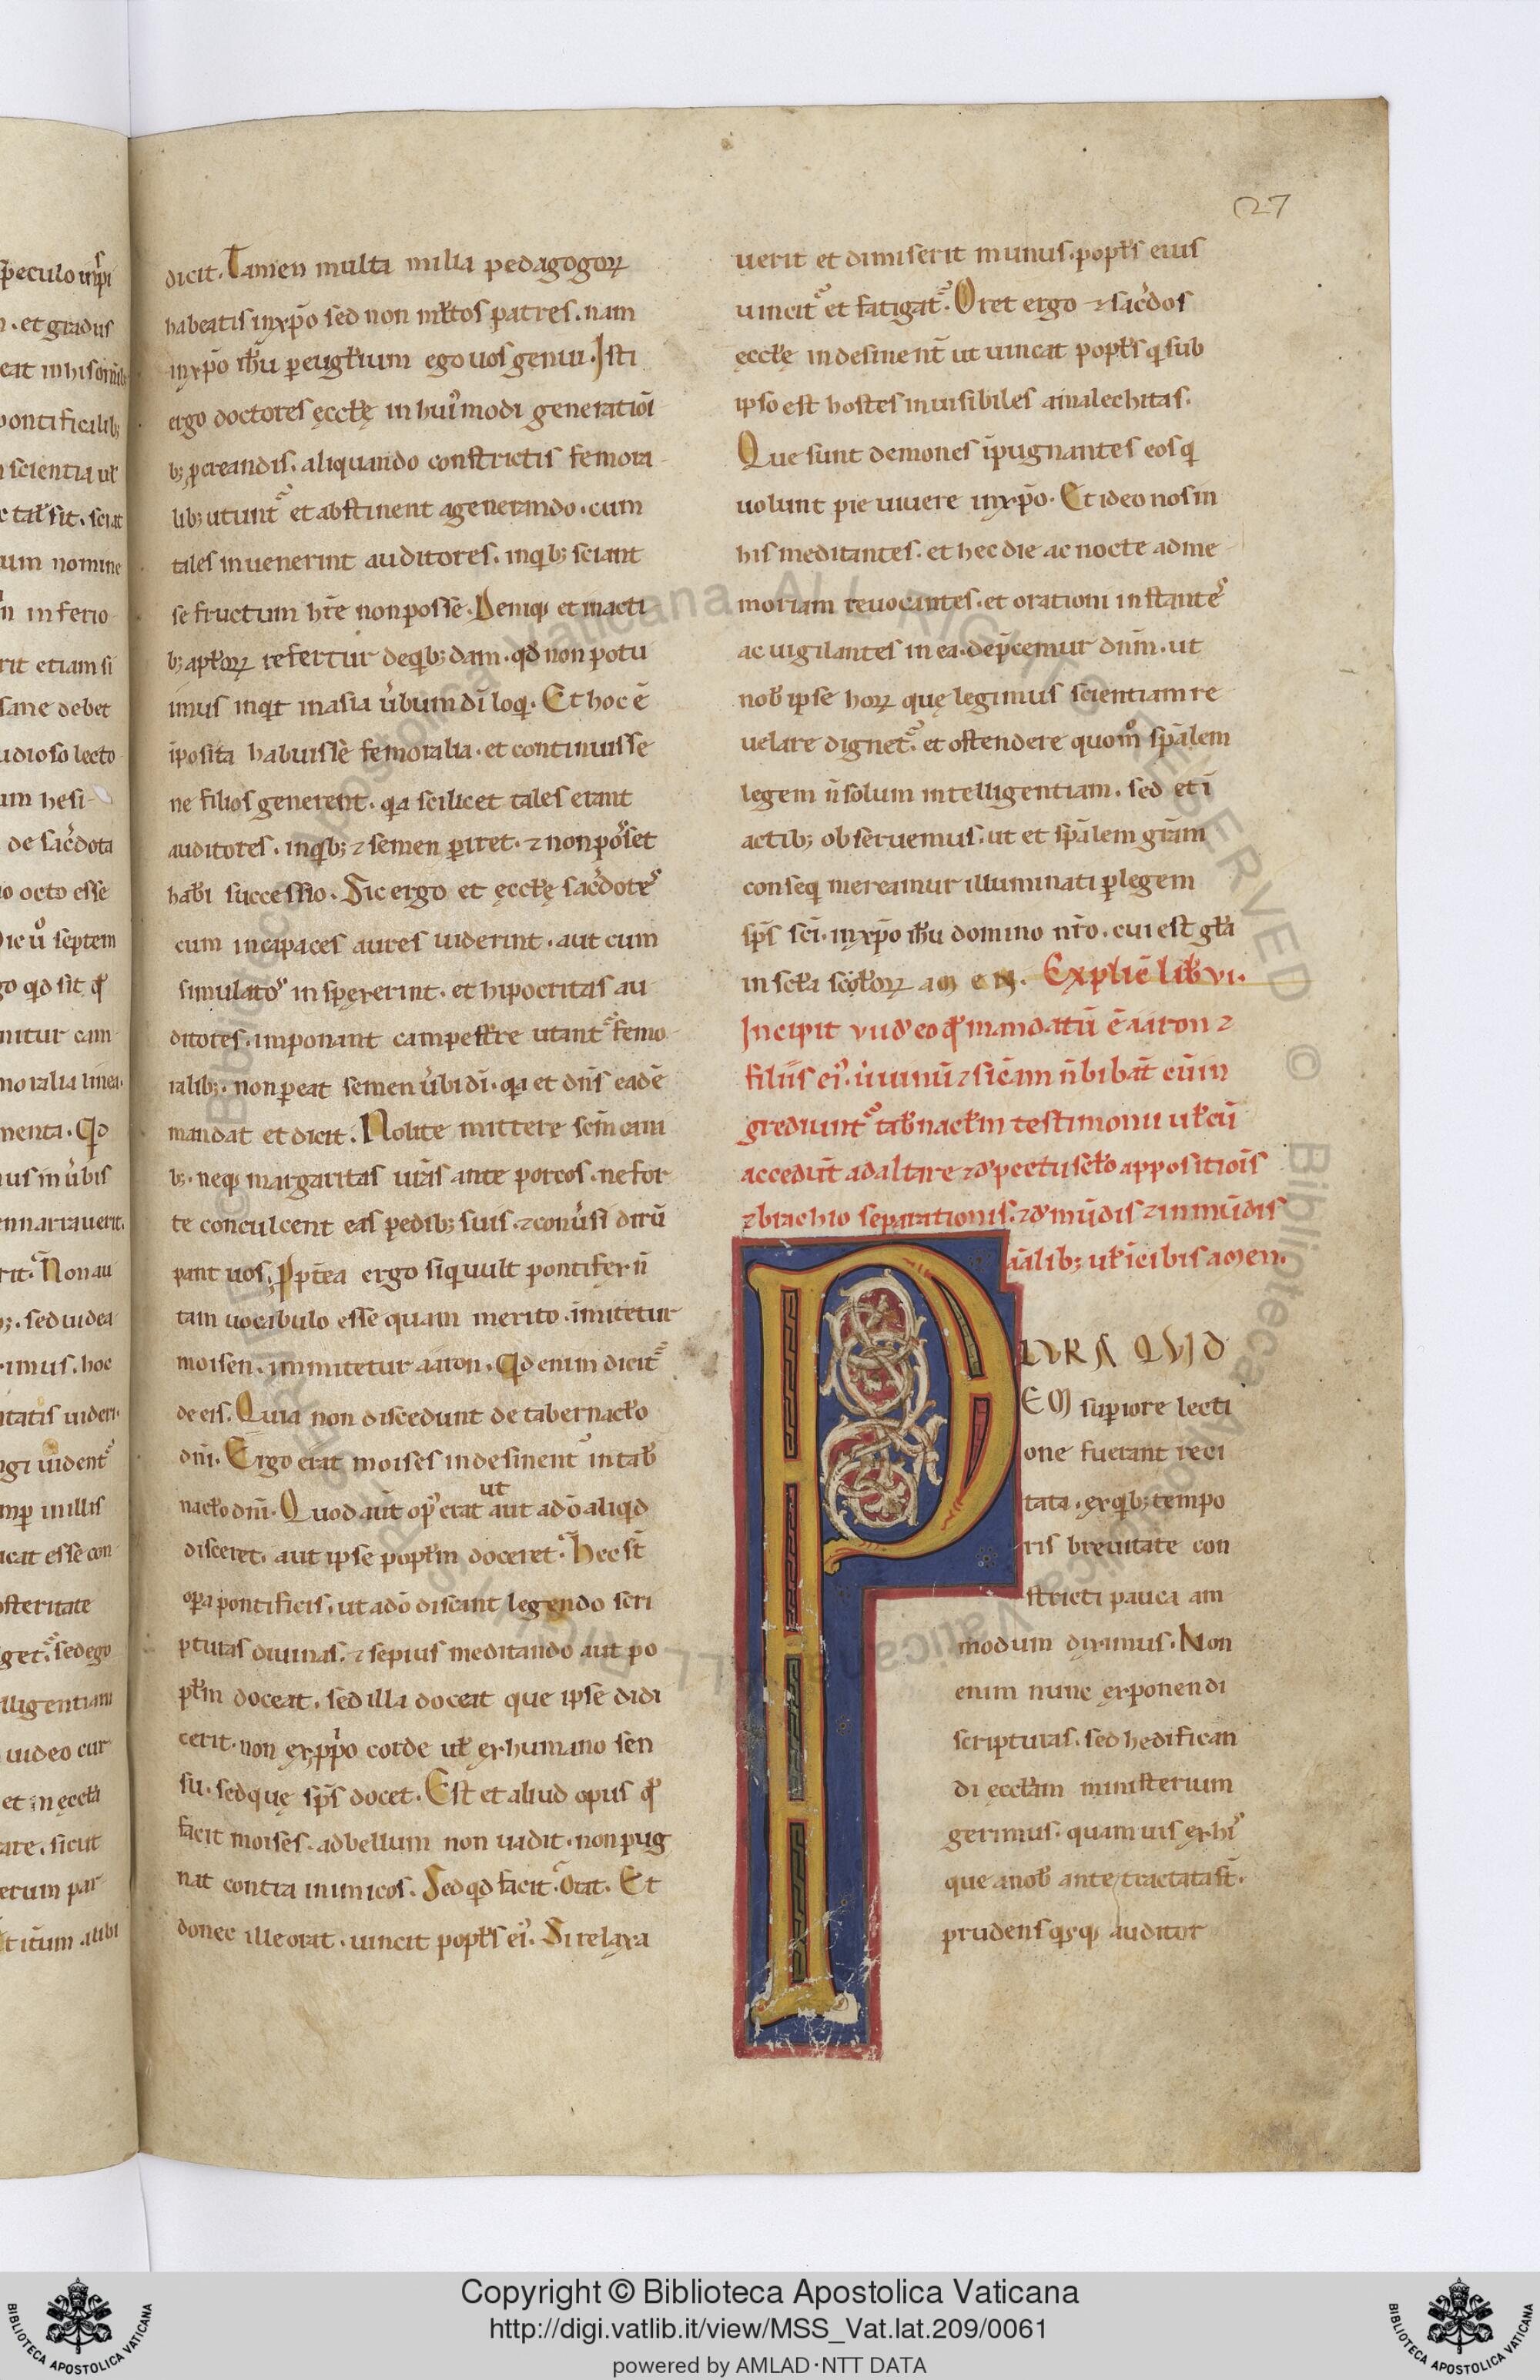 27
dicit. Tamen multa milia pedagogoꝝ
habeatis inxp̄o sed non ml̄tos patres. nam
inxp̄o ih̄u ꝑ eugl̄ium ego uos genui. Isti
ergo doctores ęccl̄ę in hui᾽modi generatiōi
bꝫ ꝓcreandis. aliquando constrictis femora
libꝫ utunt᷑ et abstinent agenerando. cum
tales inuenerint auditores. inqͥbꝫ sciant
se fructum hr̄e non posse. Deniqꝫ et inacti
bꝫ apl̄oꝝ refertur deqͥbꝫdam. qđ non potu
imus inqͥt inasia u̾bum dī loqͥ. Et hoc ē
īposita habuisse femoralia. et continuisse
ne filios generent. qͣa scilicet tales erant
auditores. inqͥbꝫ ⁊ semen ꝑiret. ⁊ non posset
hab̄i successio. Sic ergo et ęccl̄ę sac̾dotes
cum incapaces aures uiderint. aut cum
simulatores inspexerint. et hipocritas au
ditores. imponant campestre utant᷑ femo
ralibꝫ. non ꝑeat semen u̾bi dī. qͣa et dn̄s eadē
mandat et dicit. Nolite mittere sc̄m cani
bꝫ. neqꝫ margaritas ur̄as ante porcos. ne for
te conculcent eas pedibꝫ suis. ⁊ conu̾si dirū
pant uos. Ꝓpt̄ea ergo siqͥ uult pontifex n̄
tam uocabulo esse quam merito. imitetur
moisen. immitetur aaron. Qđ enim dicit᷑
de eis. Quia non discedunt de tabernacl̄o
dn̄i. Ergo erat moises indesinent̾ in tab̾
nacl̄o dn̄i. Quod aūt op᾽ erat ut aut adō aliqͥd
disceret. aut ipse popl̄m doceret. Hec st̄
oꝑa pontificis. ut adō discant legendo scri
pturas diuinas. ⁊ sepius meditando aut po
pl̄m doceat. sed illa doceat que ipse didi
cerit. non ex ꝓpͥo corde ul̄ ex humano sen
su. sed quę sp̄s docet. Est et aliud opus qđ
facit moises. ad bellum non uadit. non pug
nat contra inimicos. Sed qͥd facit. Orat. Et
donec ille orat. uincit popl̄s ei᾽. Si relaxa
uerit et dimiserit munus. popl̄s eius
uincit᷑ et fatigat᷑. Oret ergo ⁊ sac̾dos
ęccl̄ę indesinent̄ ut uincat popl̄s qͥ sub
ipso est hostes inuisibiles amalechitas.
Que sunt demones īpugnantes eos qͥ
uolunt pie uiuere inxp̄o. Et ideo nos in
his meditantes. et hec die ac nocte ad me
moriam reuocantes. et orationi instantes
ac uigilantes in ea. dep̄cemur dn̄m. ut
nob̄ ipse hoꝝ quę legimus scientiam re
uelare dignet᷑. et ostendere quom̊ sp̄alem
legem n̄ solum intelligentiam. sed et ī
actibꝫ obseruemus. ut et sp̄alem gr̄am
conseqͥ mereamur illuminati ꝑ legem
sp̄s sc̄i. inxp̄o ih̄u domino nr̄o. cui est gl̄a
in scl̄a scl̄oꝝ amen. Explic̄ lib̄ vi.
Incipit vii d̾ eo qđ mandatū ē aaron ⁊
filiis ei᾽. ut uinū ⁊ sic̄am n̄ bibāt cūin
grediunt᷑ tab̾nacl̄m testimonii ul̄ cū
accedūt ad altare ⁊ d̾ pectusc̄lo appositiōis
⁊ brachio separationis. ⁊ d̾ mūdis ⁊ inmūdis
āīalibꝫ ul̄ ī cibis amen.
PLVRA QVID
EM supiore lecti
one fuerant reci
tata. ex qͥbꝫ tempo
ris breuitate con
stricti pauca am
modum diximus. Non
enim nunc exponendi
scripturas. sed hedifican
di ęccl̄am ministerium
gerimus. quamuis ex hi᾽
que a nob̄ ante tractata st̄.
prudens qͥsqꝫ auditor
Copyright © Biblioteca Apostolica Vaticana
http://digi.vatlib.it/view/MSS_Vat.lat.209/0061
powered by AMLAD·NTT DATA
BIBLIOTECA APOSTOLICA VATICANA
BIBLIOTECA APOSTOLICA VATICANA